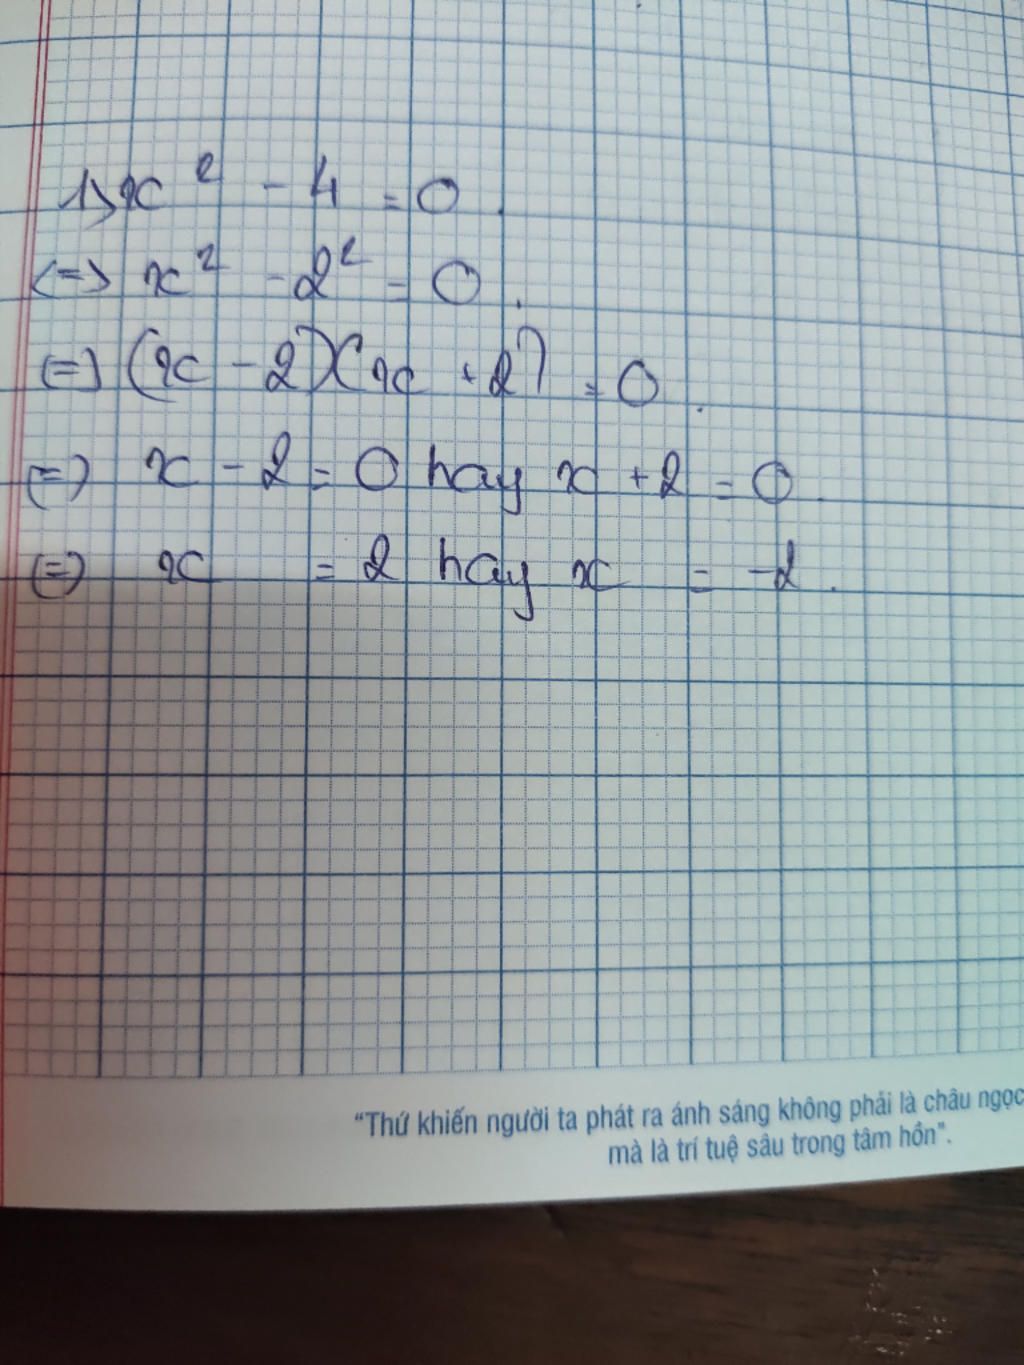 1) x² - 4 = 0.
<=> x² - 2² = 0.
<=> (x - 2)(x + 2) = 0.
<=> x - 2 = 0 hay x + 2 = 0.
<=> x = 2 hay x = -2.
“Thứ khiến người ta phát ra ánh sáng không phải là châu ngọc
mà là trí tuệ sâu trong tâm hồn”.